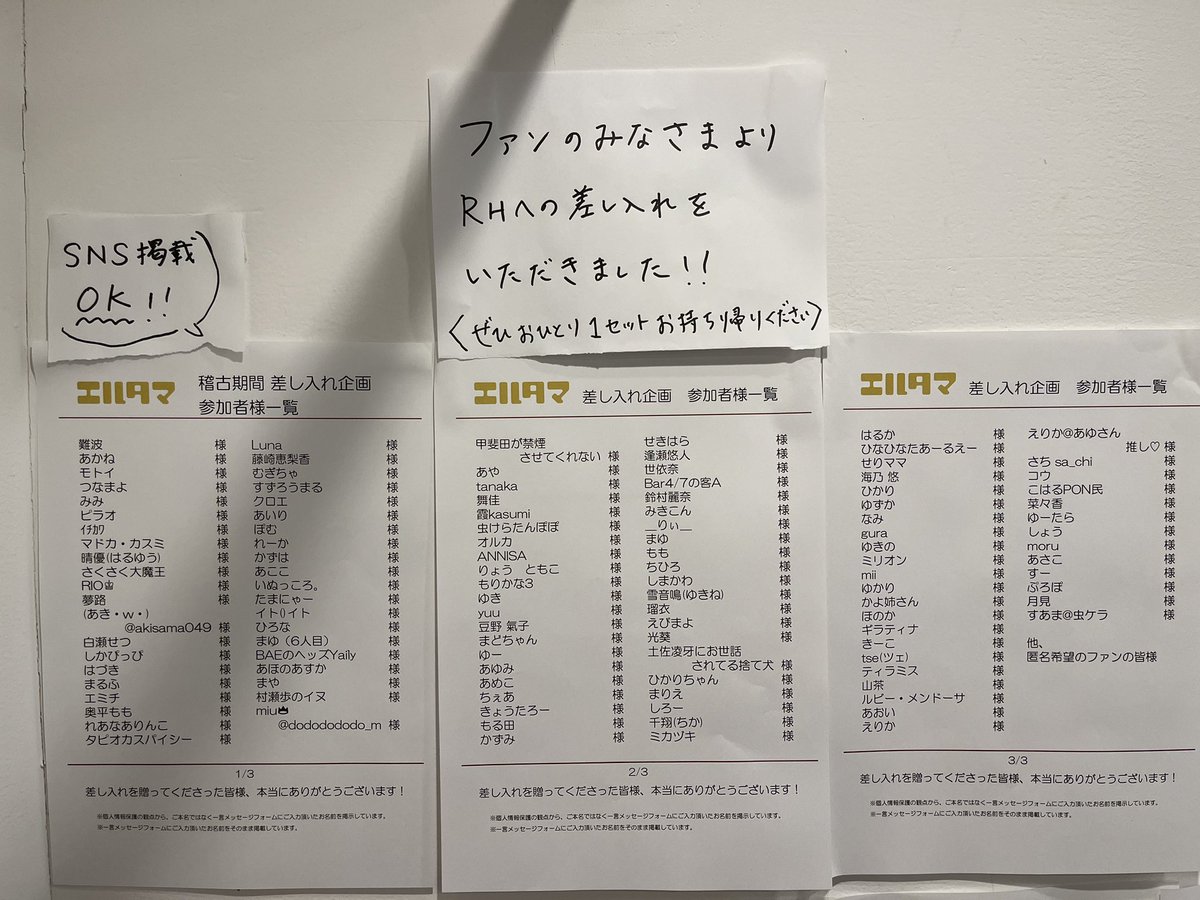 SNS掲載
OK!!
ファンのみなさまより
RHへの差し入れを
いただきました!!
〈ぜひおひとり1セットお持ち帰りください〉
エルタマ 稽古期間 差し入れ企画
参加者様一覧
難波 様
あかね 様
モトイ 様
つなまよ 様
みみ 様
ピラオ 様
ｲﾁｶﾜ 様
マドカ・カスミ 様
晴優(はるゆう) 様
さくさく大魔王 様
RIO♕ 様
夢路 様
(あき・w・)
@akisama049 様
白瀬せつ 様
しかぴっぴ 様
はづき 様
まるふ 様
エミチ 様
奥平もも 様
れあなありんこ 様
タピオカスパイシー 様
Luna 様
藤崎恵梨香 様
むぎちゃ 様
すずろうまる 様
クロエ 様
あいり 様
ぽむ 様
れーか 様
かずは 様
あここ 様
いぬっころ。 様
たまにゃー 様
イト()イト 様
ひろな 様
まゆ（6人目） 様
BAEのヘッズYaily 様
あほのあすか 様
まや 様
村瀬歩のイヌ 様
miu♛
@dododododo_m 様
1/3
差し入れを贈ってくださった皆様、本当にありがとうございます！
※個人情報保護の観点から、ご本名ではなく一言メッセージフォームにご入力頂いたお名前を掲示しています。
※一言メッセージフォームにご入力頂いたお名前をそのまま掲載しています。
エルタマ 差し入れ企画 参加者様一覧
甲斐田が禁煙
させてくれない 様
あや 様
tanaka 様
舞佳 様
霞kasumi 様
虫けらたんぽぽ 様
オルカ 様
ANNISA 様
りょう ともこ 様
もりかな3 様
ゆき 様
yuu 様
豆野 氣子 様
まどちゃん 様
ゆー 様
あゆみ 様
あめこ 様
ちぇあ 様
きょうたろー 様
もる田 様
かずみ 様
せきはら 様
逢瀬悠人 様
世依奈 様
Bar4/7の客A 様
鈴村麗奈 様
みきこん 様
__りぃ__ 様
まゆ 様
もも 様
ちひろ 様
しまかわ 様
雪音鳴(ゆきね) 様
瑠衣 様
えびまよ 様
光葵 様
土佐凌牙にお世話
されてる捨て犬 様
ひかりちゃん 様
まりえ 様
しろー 様
千翔(ちか) 様
ミカヅキ 様
2/3
差し入れを贈ってくださった皆様、本当にありがとうございます！
※個人情報保護の観点から、ご本名ではなく一言メッセージフォームにご入力頂いたお名前を掲示しています。
※一言メッセージフォームにご入力頂いたお名前をそのまま掲載しています。
エルタマ 差し入れ企画 参加者様一覧
はるか 様
ひなひなたあーるえー 様
せりママ 様
海乃 悠 様
ひかり 様
ゆずか 様
なみ 様
gura 様
ゆきの 様
ミリオン 様
mii 様
ゆかり 様
かよ姉さん 様
ほのか 様
ギラティナ 様
きーこ 様
tse(ツェ) 様
ティラミス 様
山茶 様
ルビー・メンドーサ 様
あおい 様
えりか 様
えりか@あゆさん
推し♡ 様
さち sa_chi 様
コウ 様
こはるPON民 様
菜々香 様
ゆーたら 様
しょう 様
moru 様
あさこ 様
すー 様
ぷろぽ 様
月見 様
すあま@虫ケラ 様
他、
匿名希望のファンの皆様
3/3
差し入れを贈ってくださった皆様、本当にありがとうございます！
※個人情報保護の観点から、ご本名ではなく一言メッセージフォームにご入力頂いたお名前を掲示しています。
※一言メッセージフォームにご入力頂いたお名前をそのまま掲載しています。